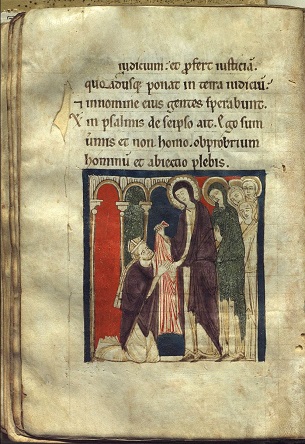 iudicium: et p̄fert iusticiā.
quo adusque ponat in terra iudiciū.
⁊ in nomine eius gentes sperabunt.
In psalmis de seipso ait. Ego sum
uermis et non homo. obprobrium
hominū et abiectio plebis.